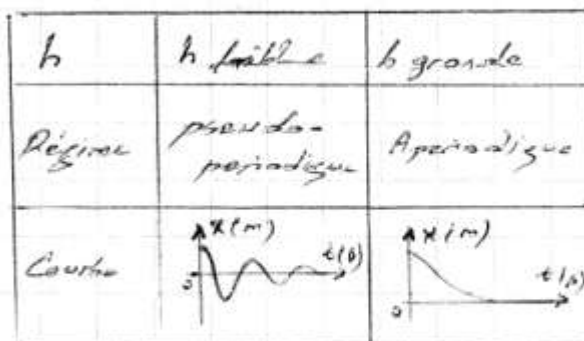 h
h faible
h grande
Régime
pseudo-
periodique
Aperiodique
Courbe
x(m)
t(s)
0
x(m)
t(s)
0